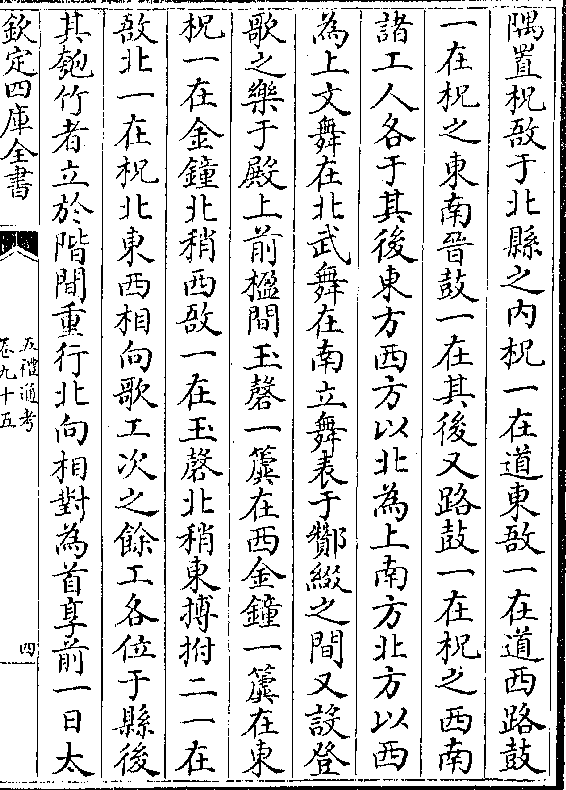 隅置柷敔于北縣之内柷一在道東敔一在道西路鼓
一在柷之東南晉鼓一在其後又路鼓一在柷之西南
諸工人各于其後東方西方以北為上南方北方以西
為上文舞在北武舞在南立舞表于酇綴之間又設登
歌之樂于殿上前楹間玉磬一簴在西金鐘一簴在東
柷一在金鐘北稍西敔一在玉磬北稍東搏拊二一在
敔北一在柷北東西相向歌工次之餘工各位于縣後
其匏竹者立於階間重行北向相對為首享前一日太
欽定四庫全書
五禮通考
卷九十五
四